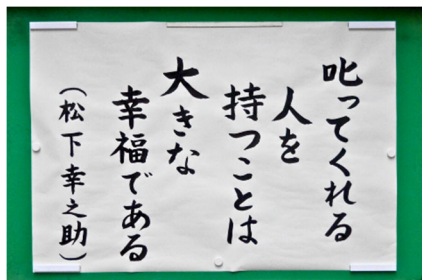 叱ってくれる
人を
持つことは
大きな
幸福である
（松下幸之助）